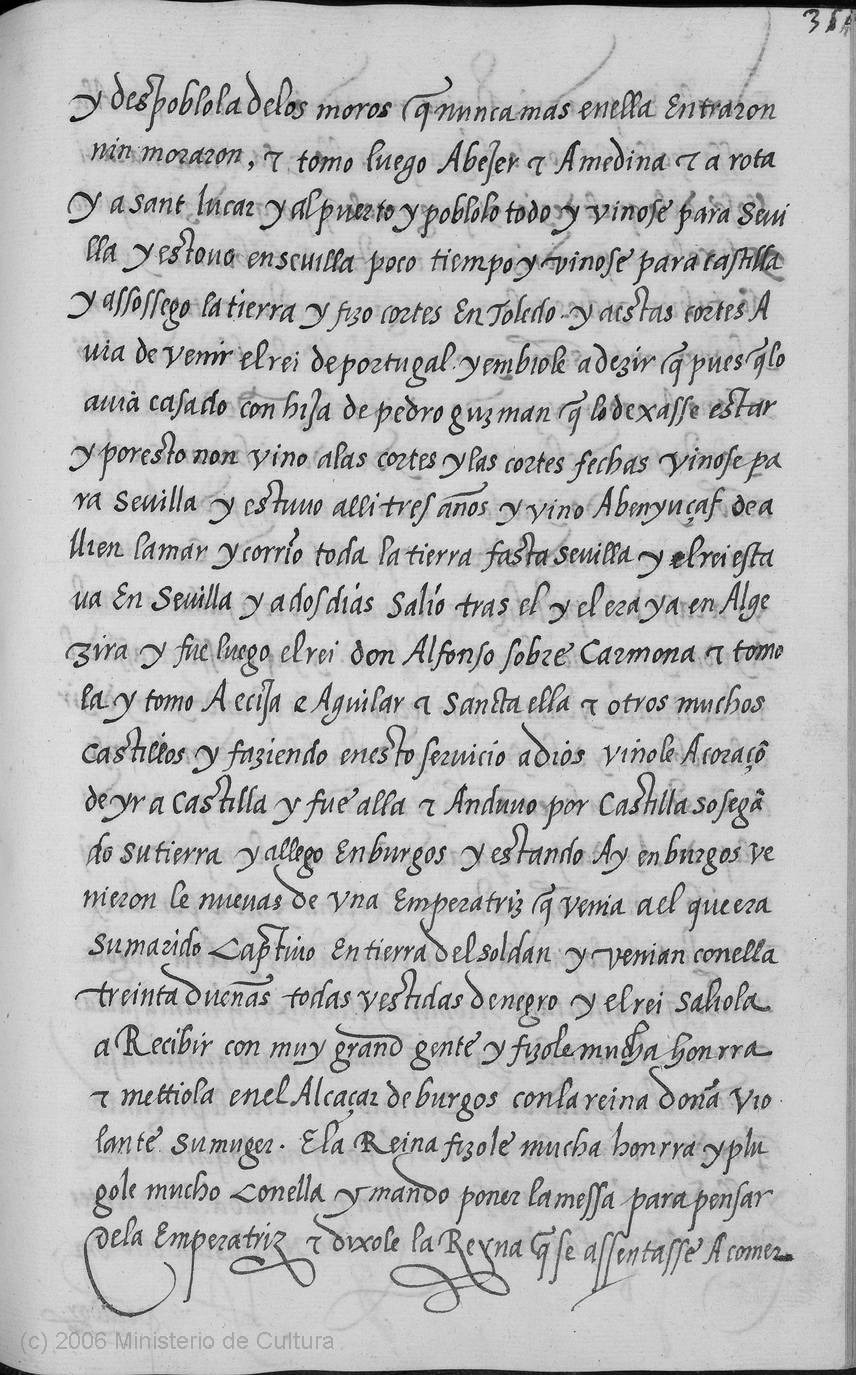 y despoblola delos moros q̃ nunca mas enella Entraron
nin moraron, τ tomo luego Abejer τ Amedina τ a rota
y a sant lucar y alpuerto y poblolo todo y vinose para Sevi
lla y estovo ensevilla poco tiempo y vinose para castilla
y assossego la tierra y fizo cortes En Toledo. y aestas cortes A
via de venir el rei de portugal. y embiole a dezir q̃ pues q̃lo
auia casado con hija de pedro guzman q̃ lo dexasse estar
y poresto non vino alas cortes y las cortes fechas vinose pa
ra Sevilla y estuvo alli tres años y vino Abenyuçaf de a
llien la mar y corrio toda la tierra fasta sevilla y el rei esta
va En Sevilla y a dos dias Salió tras el y el era ya en Alge
zira y fue luego el rei don Alfonso sobre Carmona τ tomo
la y tomo A ecija e Aguilar τ Sancta ella τ otros muchos
Castillos y faziendo enesto servicio a dios vinole A coraçõ
de yr a Castilla y fue alla τ Anduvo por Castilla sosegã
do su tierra y allego En burgos y estando Ay en burgos ve
nieron le nuevas de vna Emperatriz q̃ venia a el que era
Su marido Captivo En tierra del soldan y venian conella
treinta dueñas todas vestidas de negro y el rei Saliola
a Recibir con muy grand gente y fizole mucha honrra
τ mettiola enel Alcaçar de burgos con la reina doña vio
lante Su muger. E la Reina fizole mucha honrra y plu
gole mucho Conella y mando poner la messa para pensar
dela Emperatriz τ dixole la Reyna q̃ se assentasse A comer
(c) 2006 Ministerio de Cultura